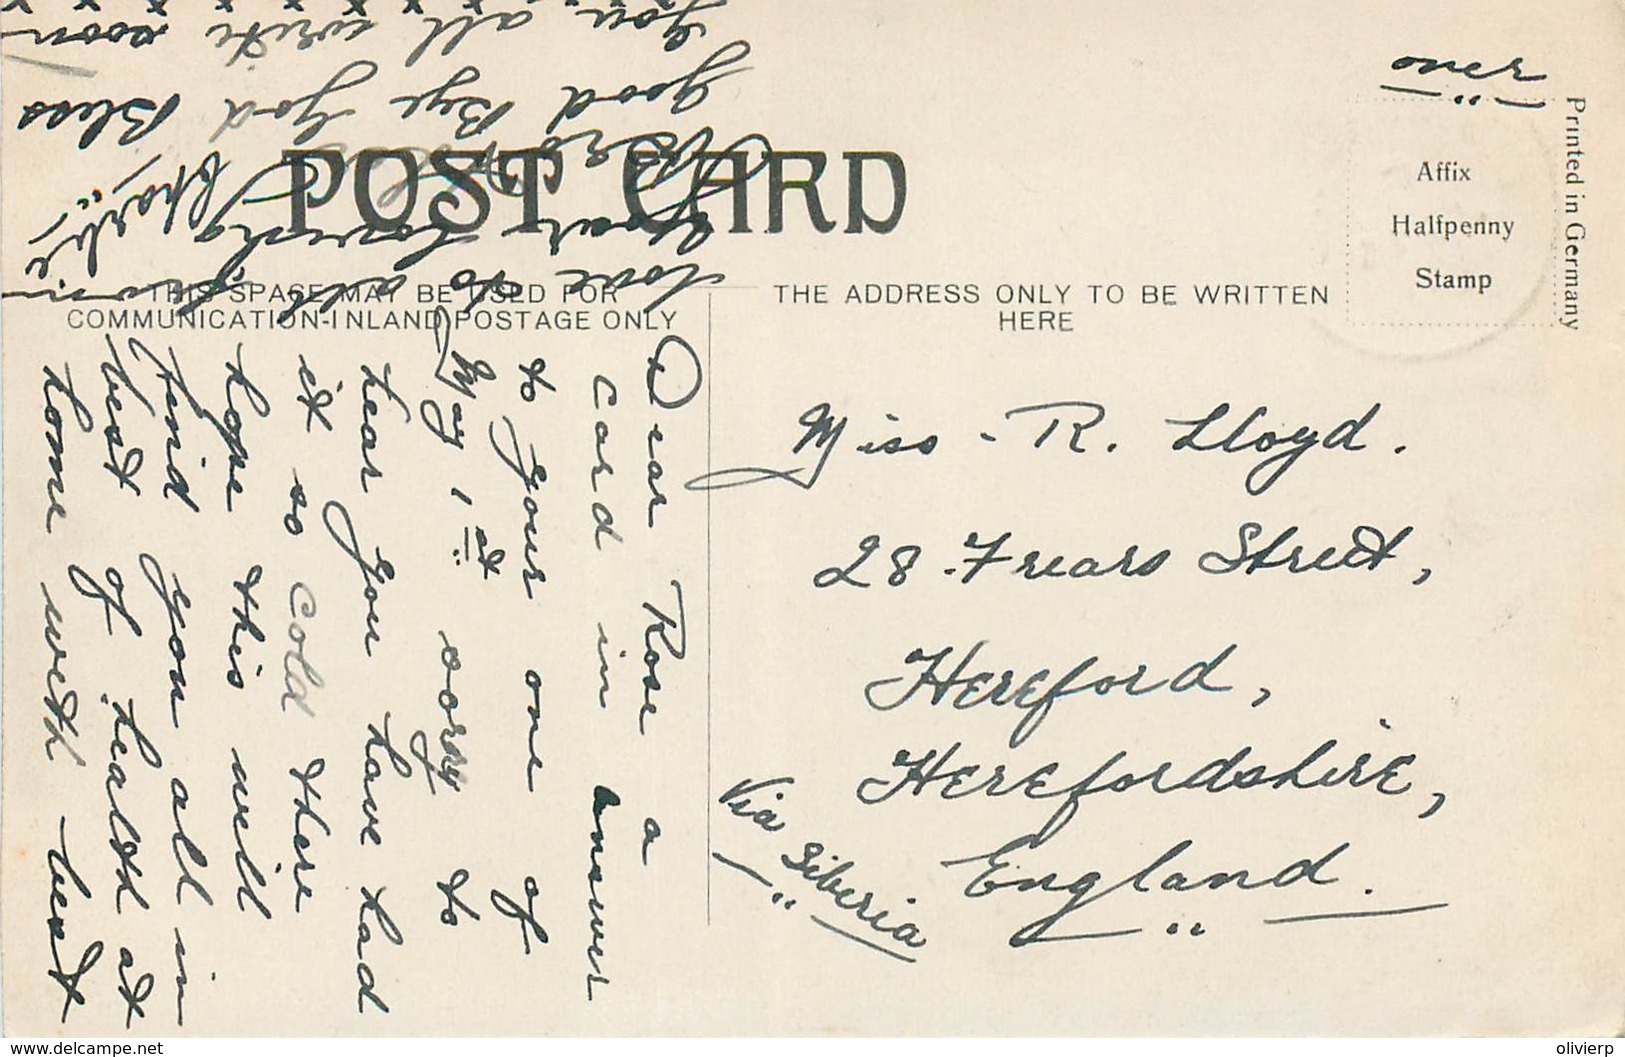 over
POST CARD
THIS SPACE MAY BE USED FOR
COMMUNICATION-INLAND POSTAGE ONLY
THE ADDRESS ONLY TO BE WRITTEN
HERE
Affix
Halfpenny
Stamp
Printed in Germany
Miss. R. Lloyd.
28. Friars Street,
Hereford,
Herefordshire,
England.
Via Siberia
Dear Rose a
card in answer
to your one of
May 1st sorry to
hear you have had
it so cold there
hope this will
find you all in
best of health at
home with best
love to all from
your loving
Bro Charlie
Good Bye God Bless
you all write soon
x x x x x x x x
www.delcampe.net
olivierp